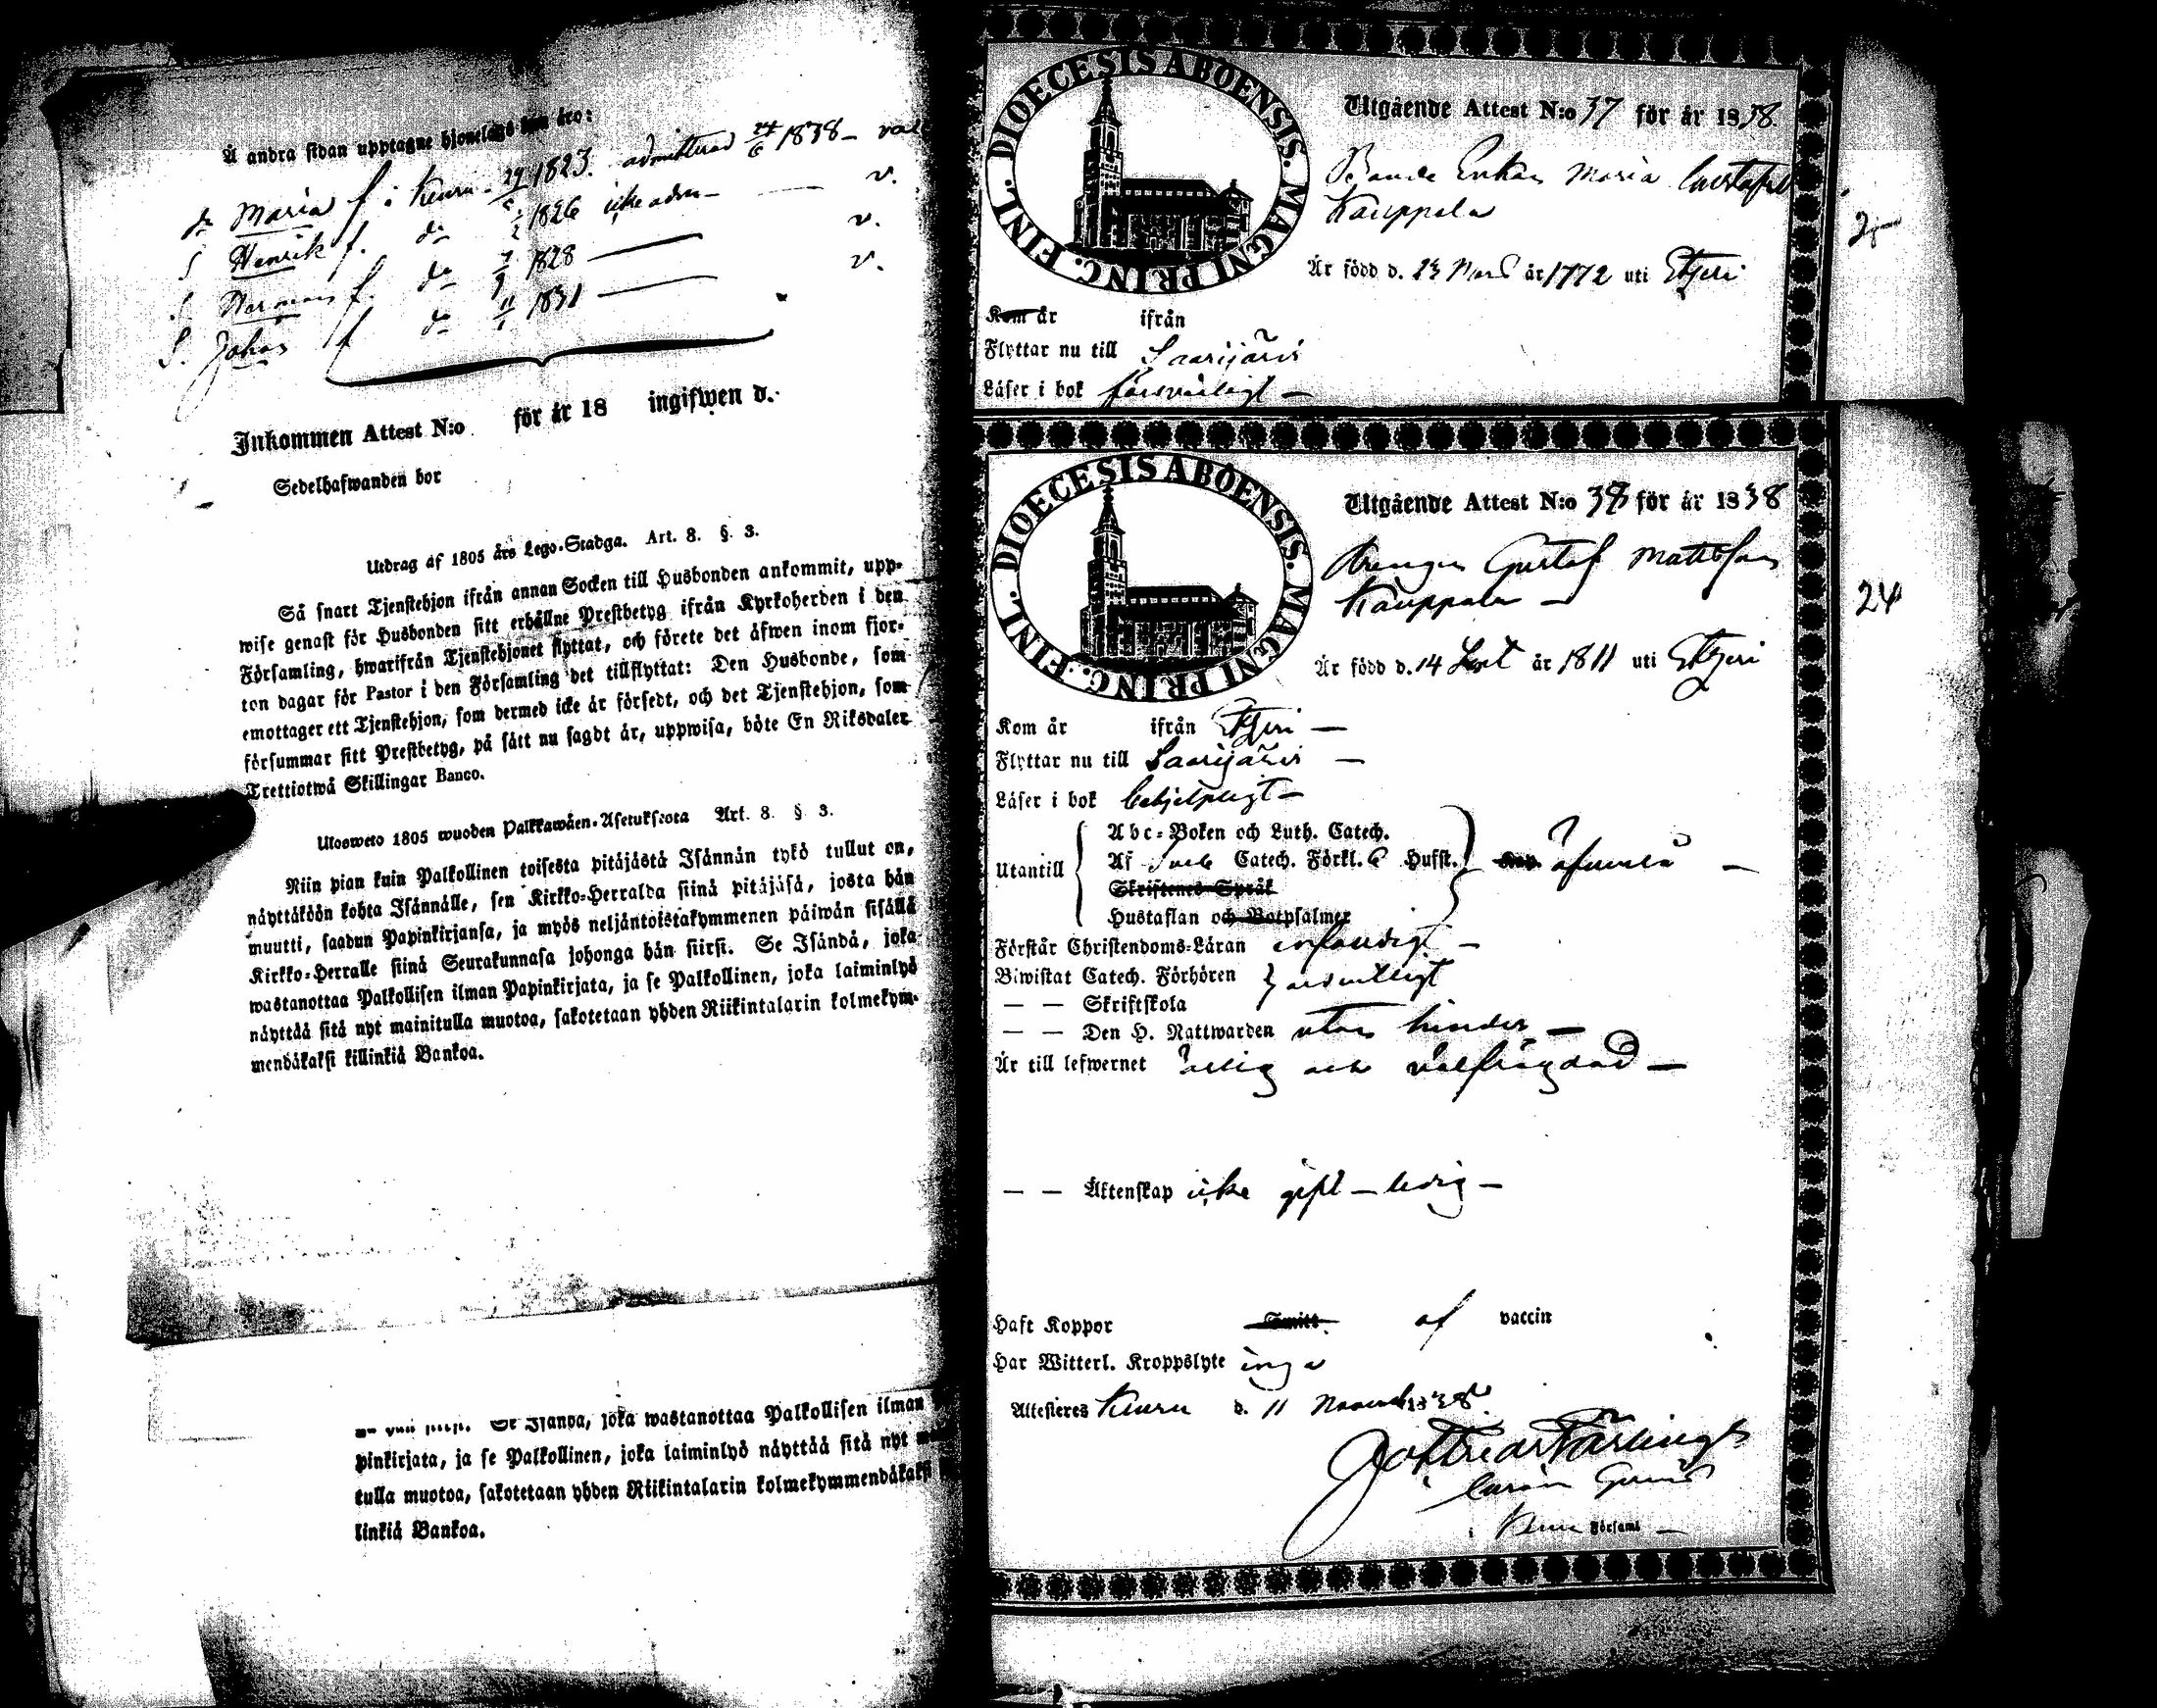 Å andra sidan upptagne hjonelags barn äro:
dr Maria f. i Kuru 29 1823. admitterad 24/6 1838 —
S Henrik f. do 1826 icke adm — v.
S. Herman f. do 7/9 1828 — v.
S. Johan f. do 11 1831 — v.
Inkommen Attest N:o för år 18 ingifwen d.
Sedelhafwanden bor
Utdrag af 1805 års Lego-Stadga. Art. 8. §. 3.
Så snart Tjenstehjon ifrån annan Socken till Husbonden ankommit, upp-
wise genast för Husbonden sitt erhållne Prestbetyg ifrån Kyrkoherden i den
Församling, hwarifrån Tjenstehjonet flyttat, och förete det äfwen inom fjor-
ton dagar för Pastor i den Församling det tillflyttat: Den Husbonde, som
emottager ett Tjenstehjon, som dermed icke är försedt, och det Tjenstehjon, som
försummar sitt Prestbetyg, på sätt nu sagdt är, uppwisa, böte En Riksdaler
Trettiotwå Skillingar Banco.
Ulosweto 1805 wuoden Palkkawäen-Asetuksesta Art. 8. § 3.
Niin pian kuin Palkollinen toisesta pitäjästä Isännän tykö tullut on,
näyttäköön kohta Isännälle, sen Kirkko-Herralda siinä pitäjäsä, josta hän
muutti, saadun Papinkirjansa, ja myös neljäntoistakymmenen päiwän sisällä
Kirkko-Herralle siinä Seurakunnasa johonga hän siirsi. Se Isändä, joka
wastanottaa Palkollisen ilman Papinkirjata, ja se Palkollinen, joka laiminlyö
näyttää sitä nyt mainitulla muotoa, sakotetaan yhden Riikintalarin kolmekym-
mendäkaksi killinkiä Bankoa.
Se Isändä, joka wastanottaa Palkollisen ilman
pinkirjata, ja se Palkollinen, joka laiminlyö näyttää sitä nyt
tulla muotoa, sakotetaan yhden Riikintalarin kolmekymmendäkaksi
linkiä Bankoa.
DIOECESIS ABOENSIS. MAGNI PRINC. FINL.
Utgående Attest N:o 37 för år 1838.
Bonde Enkan Maria Gustafsd
Kauppala
2
Är född d. 23 Mars år 1772 uti Etseri
Kom år ifrån
Flyttar nu till Saarijärvi
Läser i bok försvarligt —
DIOECESIS ABOENSIS. MAGNI PRINC. FINL.
Utgående Attest N:o 38 för år 1838
Drengen Gustaf Mattsson
Kauppala —
24
Är född d. 14 Sept år 1811 uti Etseri
Kom år ifrån Etseri —
Flyttar nu till Saarijärvi —
Läser i bok behjelpligt —
Utantill
Abc-Boken och Luth. Catech.
Af Catech. Förkl. 6 Hufst.
Skriftenes Språk
Hustaflan och Botpsalmer
Förstår Christendoms-Läran enfaldigt —
Biwistat Catech. Förhören ordentligt
— — Skriftskola
— — Den H. Nattwarden utan hinder —
Är till lefwernet ärlig och välfrägdad —
— — Äktenskap icke gift — ledig —
Haft Koppor Smitt. af vaccin
Har Witterl. Kroppslyte inga
Attesteres Kuru d. 11 Novemb. 1838.
Kuru Församl —